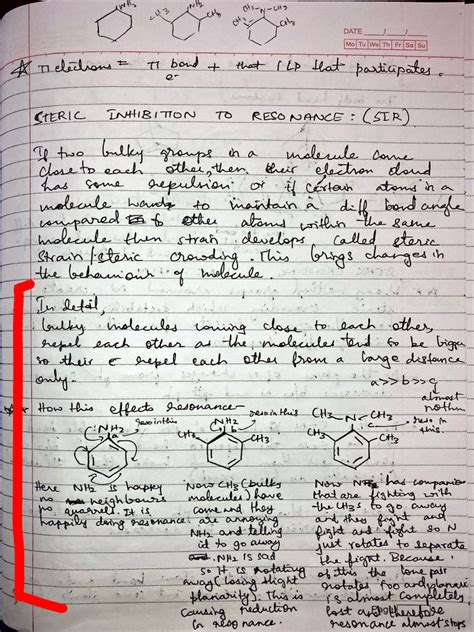 NH₂ CH₃ NH₂ CH₃ CH₃ N-CH₃ CH₃
DATE
Mo Tu We Th Fr Sa Su
π electrons = π bond + that 1 LP that participates.
e⁻
STERIC INHIBITION TO RESONANCE: (SIR)
If two bulky groups in a molecule come
close to each other, then their electron cloud
has some repulsion or if certain atoms in a
molecule wants to maintain a diff bond angle
compared to other atoms within the same
molecule then strain develops called steric
strain/steric crowding. This brings changes in
the behaviour of molecule.
In detail,
bulky molecules coming close to each other,
repel each other as the molecules tend to be bigger
so their e⁻ repel each other from a large distance
only.
a>>b>>c
How this effects resonance
almost nothin
NH₂ reso in this
a
CH₃ NH₂ CH₃ reso in this
b
CH₃-N-CH₃ CH₃ CH₃ reso in this.
c
Here NH₂ is happy
no neighbours
no quarrels. It is
happily doing resonance.
Now CH₃ (bulky
molecules) have
come and they
are annoying
NH₂ and telling
it to go away
NH₂ is sad
so it is rotating
away (losing slight
planarity). This is
causing reduction
in resonance.
Now NH₂ has companion
that are fighting with
the CH₃s to go away
and they fight and
fight and fight so N
just rotates to separate
the fight. Because
of this the lone pair
rotates too and planarity
is almost completely
lost and therefore
resonance almost stops